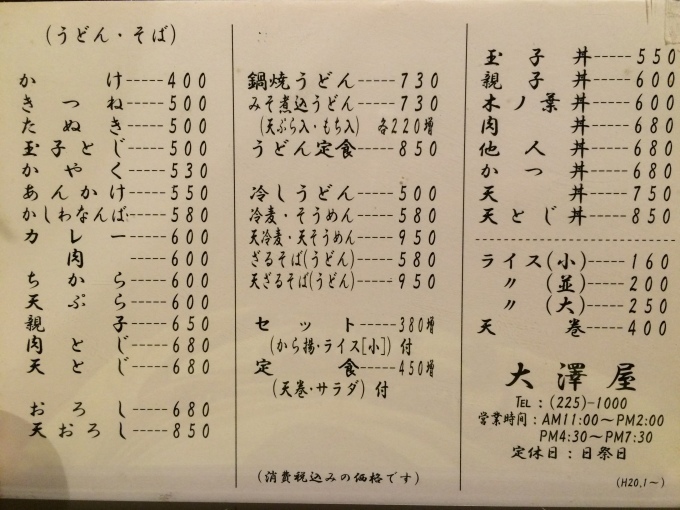 (うどん・そば)
かけ-----400
きつね-----500
たぬき-----500
玉子とじ-----500
かやく-----530
あんかけ-----550
かしわなんば-----580
カレー-----600
肉-----600
ちから-----600
天ぷら-----600
親子-----650
肉とじ-----680
天とじ-----680
おろし-----680
天おろし-----850
鍋焼うどん-----730
みそ煮込うどん-----730
(天ぷら入・もち入) 各220増
うどん定食-----850
冷しうどん-----500
冷麦・そうめん-----580
天冷麦・天そうめん-----950
ざるそば(うどん)-----580
天ざるそば(うどん)-----950
セット-----380増
(から揚・ライス[小])付
定食-----450増
(天巻・サラダ)付
(消費税込みの価格です)
玉子丼-----550
親子丼-----600
木ノ葉丼-----600
肉丼-----680
他人丼-----680
かつ丼-----680
天丼-----750
天とじ丼-----850
ライス(小)-----160
〃(並)-----200
〃(大)-----250
天巻-----400
大澤屋
TEL:(225)-1000
営業時間:AM11:00〜PM2:00
PM4:30〜PM7:30
定休日:日祭日
(H20.1〜)